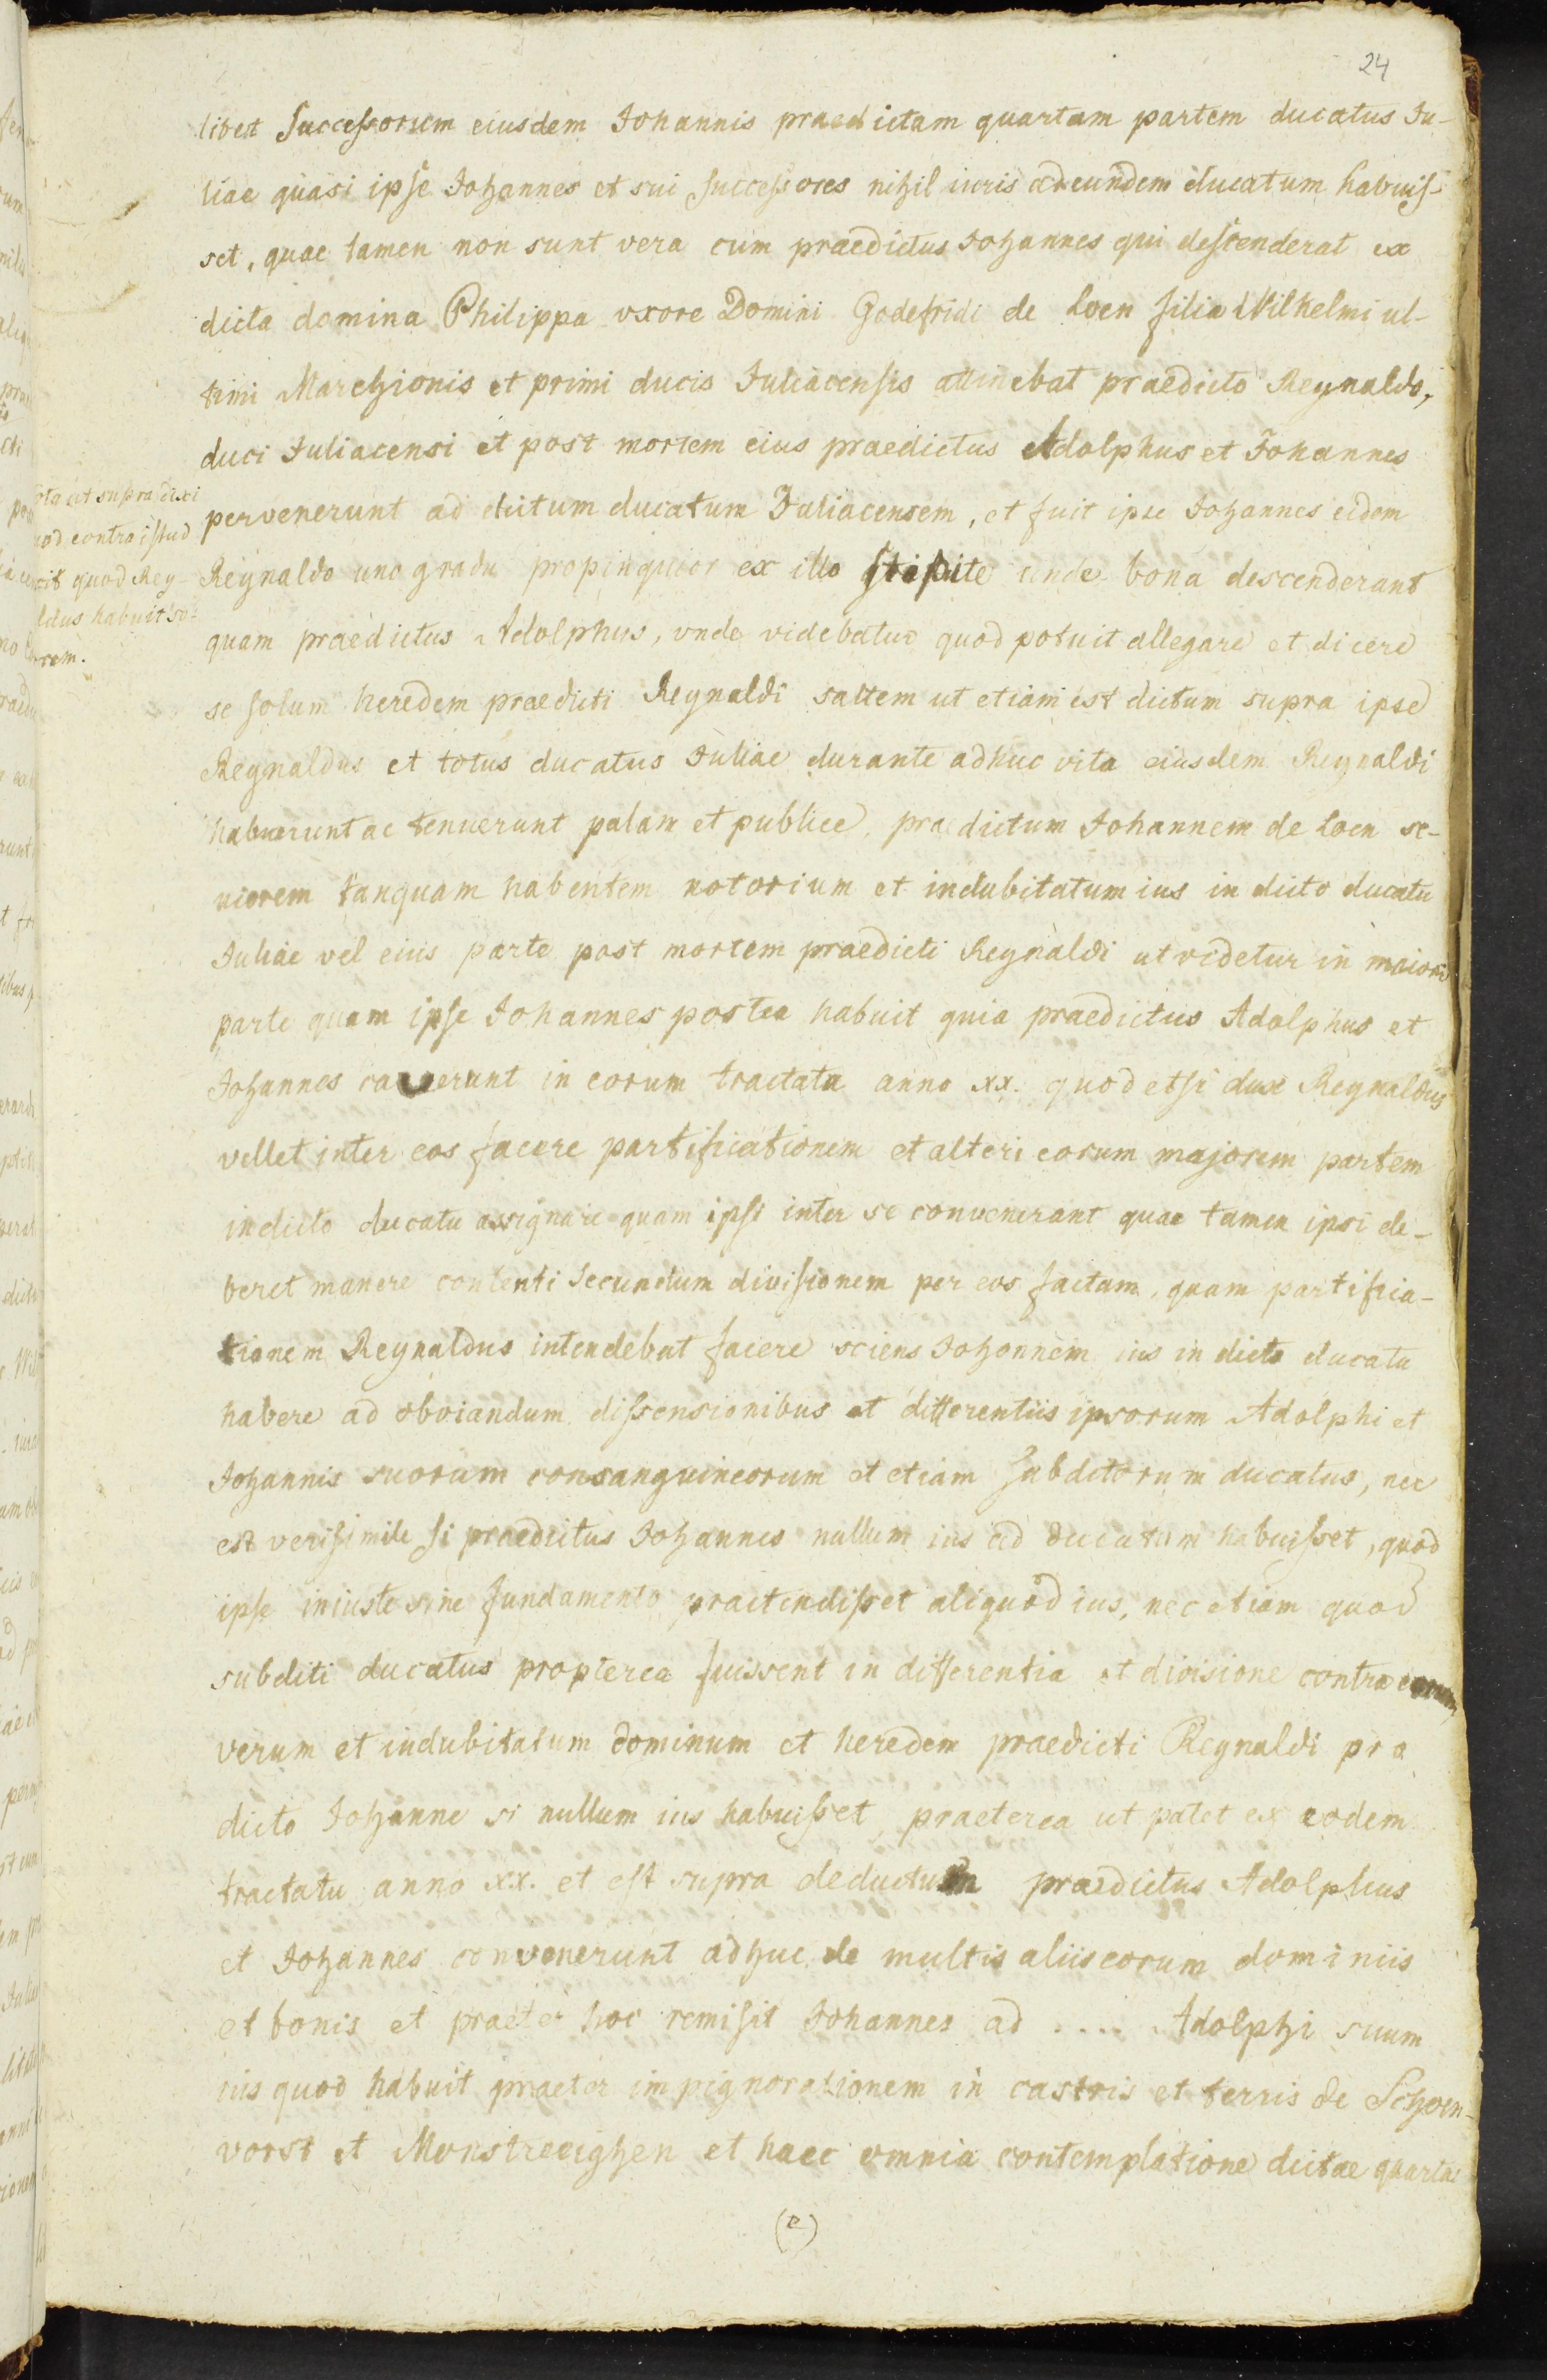 24
libet Successorum eiusdem Johannis praedictam quartam partem ducatus Ju-
liae quasi ipse Johannes et sui successores nihil iuris ad eundem ducatum habuis-
set, quae tamen non sunt vera cum praedictus Johannes qui descenderat ex
dicta domina Philippa vxore Domini Godefridi de Loen filia Wilhelmi ul-
timi Marchionis et primi ducis Juliacensis attinebat praedicto Reynaldo,
duci Juliacensi et post mortem eius praedictus Adolphus et Johannes
pervenerunt ad dictum ducatum Juliacensem, et fuit ipse Johannes eidem
Reynaldo uno gradu propinquior ex illo stipite unde bona descenderant
quam praedictus Adolphus, vnde videbatur quod potuit allegare et dicere
se solum heredem praedicti Reynaldi saltem ut etiam est dictum supra ipse
Reynaldus et totus ducatus Juliae durante adhuc vita eiusdem Reynaldi
habuerunt ac tenuerunt palam et publice, praedictum Johannem de Loen se-
niorem tanquam habentem notorium et indubitatum ius in dicto ducatu
Juliae vel eius parte post mortem praedicti Reynaldi ut videtur in maiori
parte quam ipse Johannes postea habuit quia praedictus Adolphus et
Johannes caverunt in eorum tractata anno xx. quod etsi dux Reynaldus
vellet inter eos facere partificationem et alteri eorum majorem partem
in dicto ducatu assignare quam ipsi inter se convenerant quae tamen ipsi de-
beret manere contenti secundum divisionem per eos factam, quam partificia-
tionem Reynaldus intendebat facere sciens Johannem ius in dicto ducatu
habere ad obviandum dissensionibus et differentiis ipsorum Adolphi et
Johannis suorum consanguineorum et etiam subditorum ducatus, nec
est verisimile si praedictus Johannes nullum ius ad ducatum habuisset, quod
ipse iniuste sine fundamento praetendisset aliquod ius, nec etiam quod
subditi ducatus propterea fuissent in differentia et divisione contra eorum
verum et indubitatum dominum et heredem praedicti Reynaldi pro
dicto Johanne si nullum ius habuisset, praeterea ut patet ex eodem
tractatu anno xx. et est supra deductum praedictus Adolphus
et Johannes convenerunt adhuc de multis aliis eorum dominiis
et bonis et praeter hoc remisit Johannes ad ..... Adolphi suum
ius quod habuit praeter impignorationem in castris et terris de Schoen-
vorst et Monstreeighen et haec omnia contemplatione dictae quartae
(e)
ut supra dixi
contra istud
quod Rey-
habuit so-